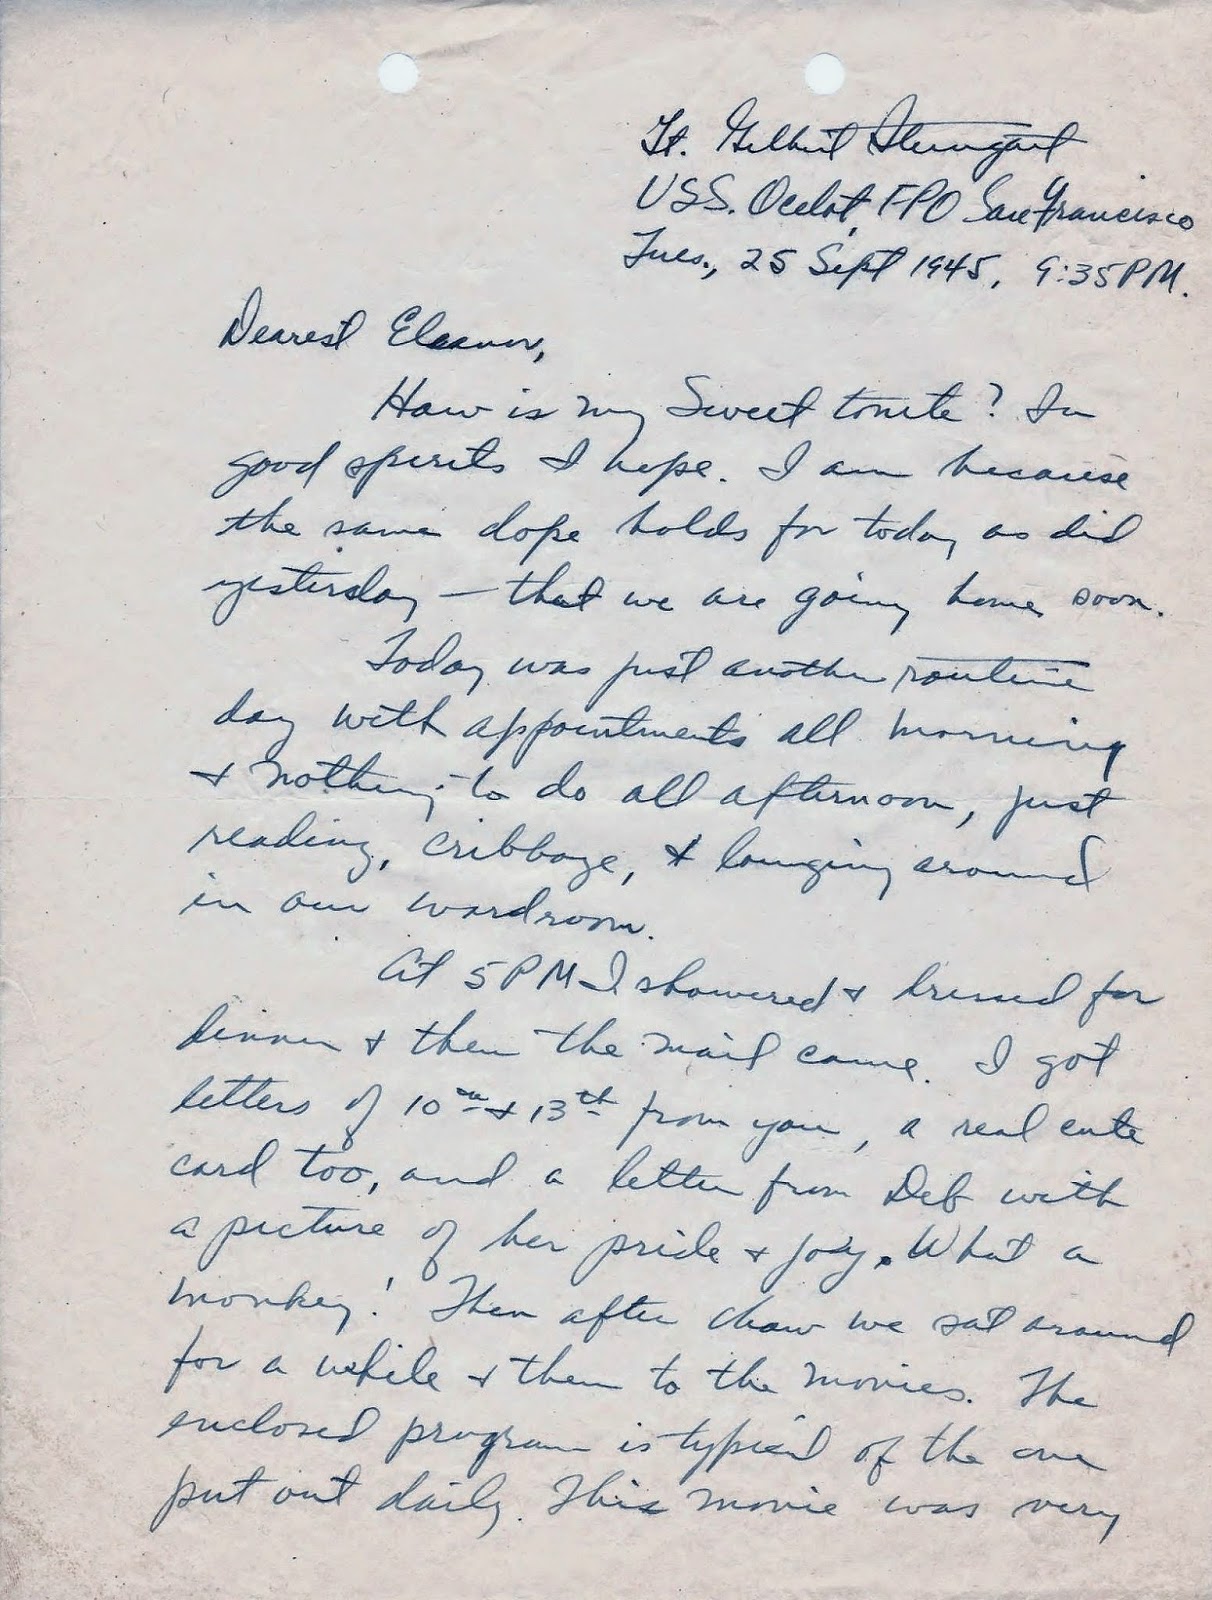 Lt. Gilbert Steingart
USS. Ocelot, FPO San Francisco
Tues., 25 Sept 1945, 9:35PM.
Dearest Eleanor,
How is my Sweet tonite? In
good spirits I hope. I am because
the same dope holds for today as did
yesterday — that we are going home soon.
Today was just another routine
day with appointments all morning
& nothing to do all afternoon, just
reading, cribbage, & lounging around
in our wardroom.
At 5 PM I showered & dressed for
dinner & then the mail came. I got
letters of 10th & 13th from you, a real cute
card too, and a letter from Deb with
a picture of her pride & joy. What a
monkey! Then after chow we sat around
for a while & then to the movies. The
enclosed program is typical of the one
put out daily. This movie was very